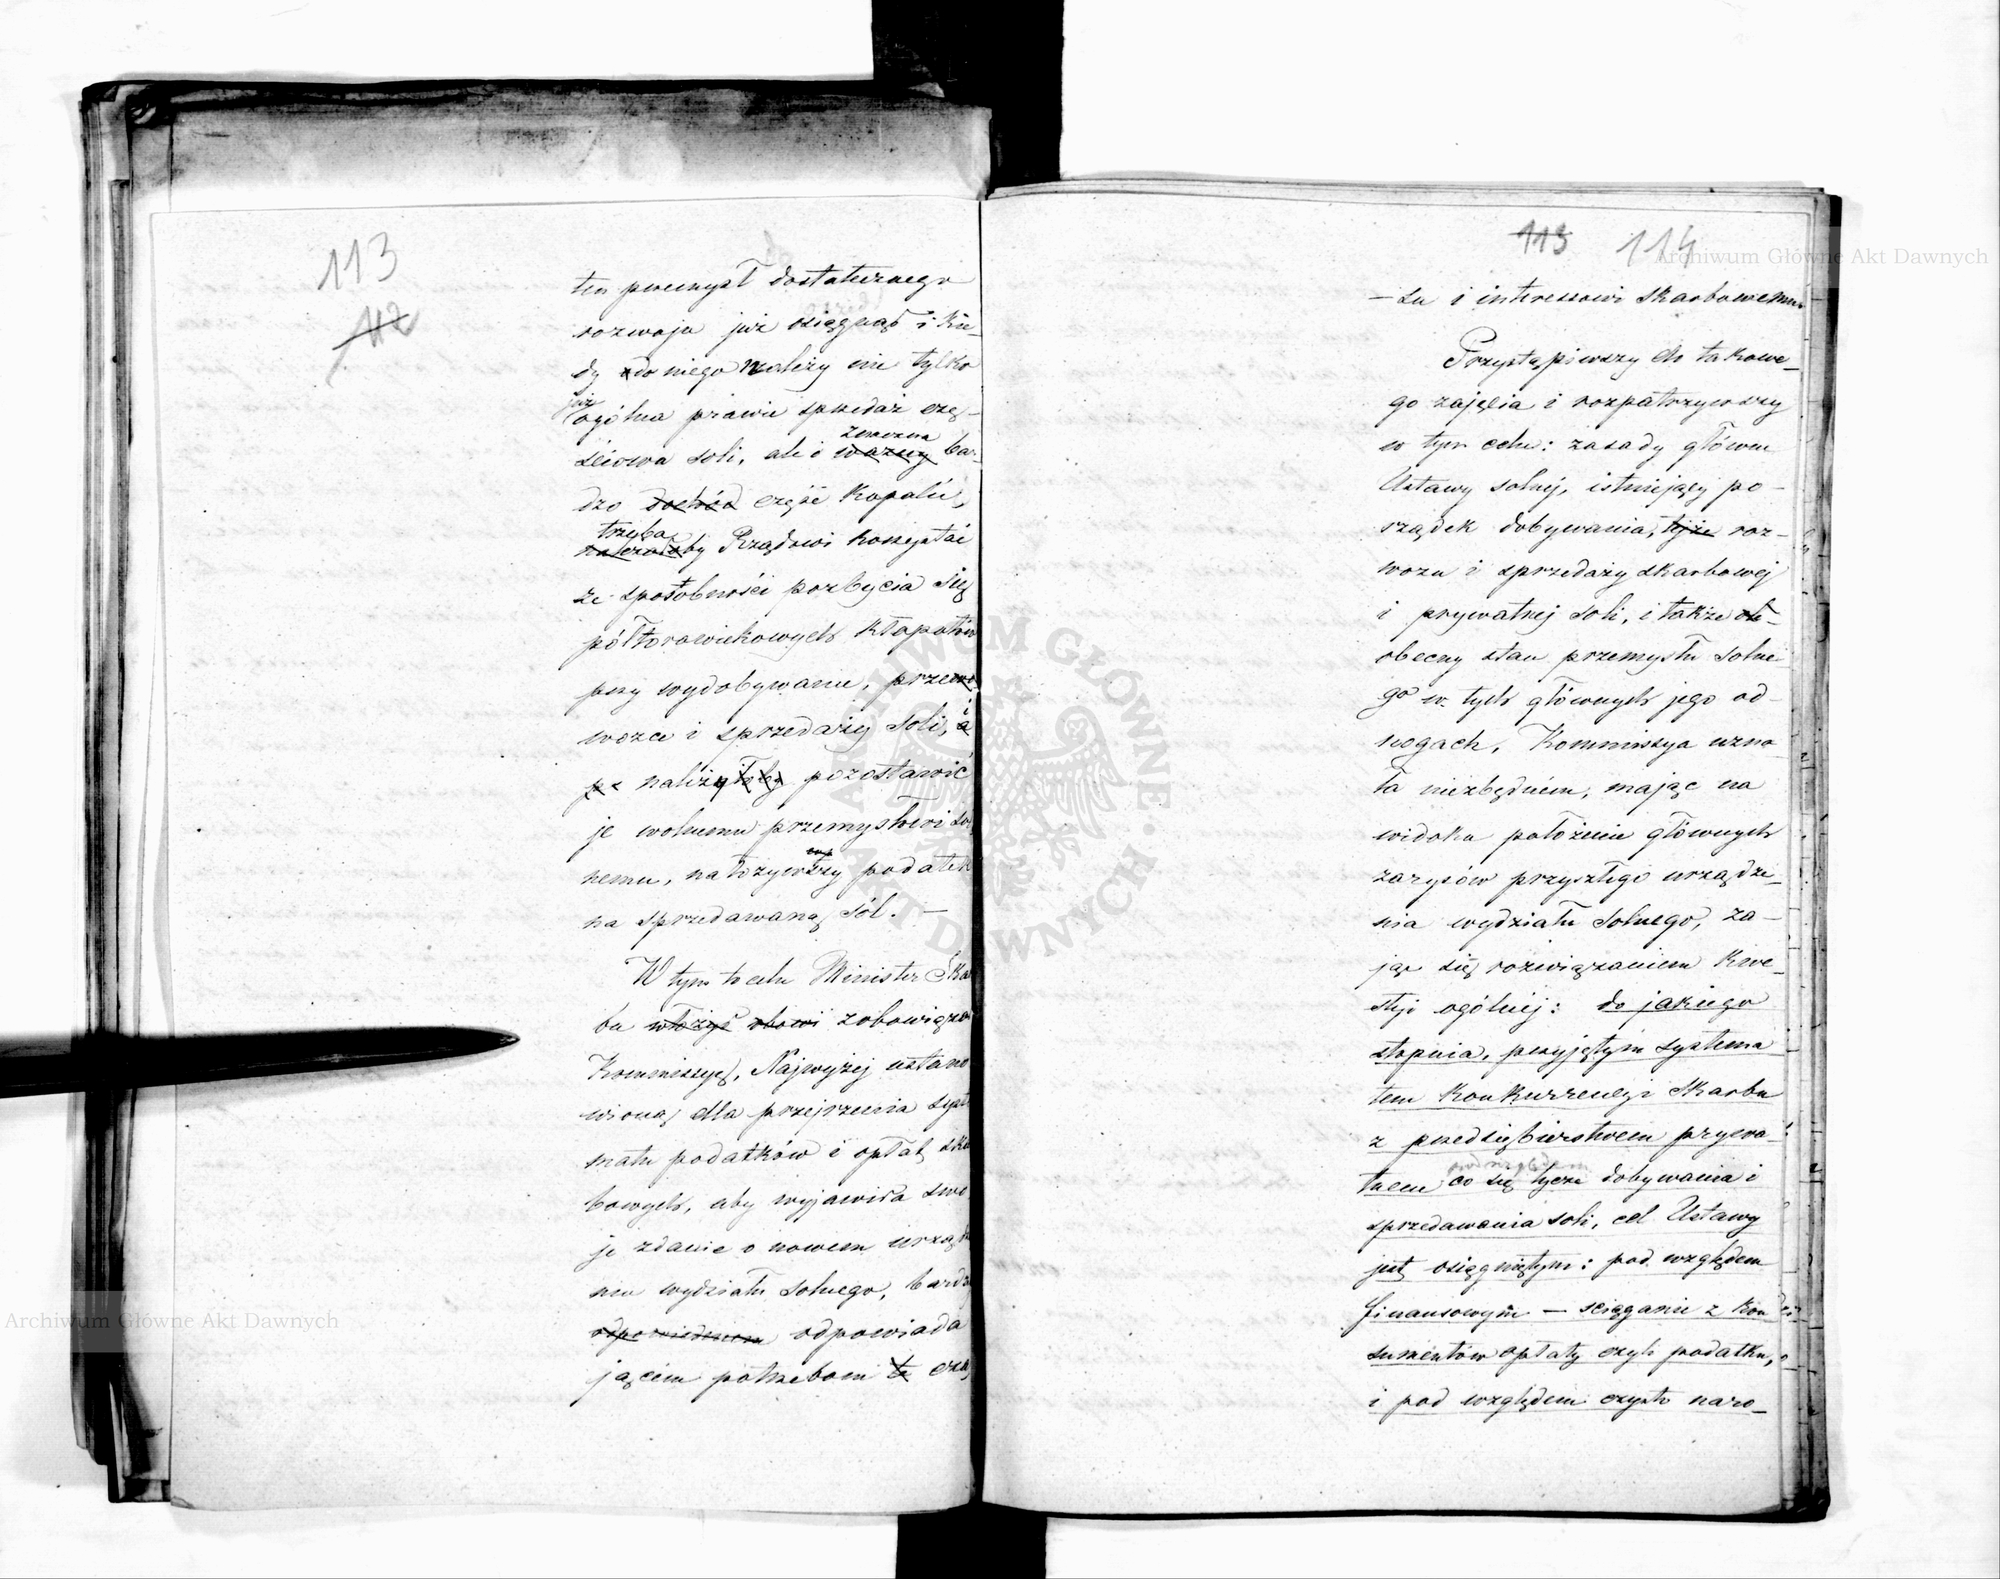 113
112
ten przemysł dostatecznego
rozwoju już osiągnął i kie-
dy do niego należy nie tylko
już
ogólna prawie sprzedaż czę-
znaczna
ściowa soli, ale i ważny bar-
dzo dochód część kopalń,
trzeba
należałoby Rządowi korzystać
ze sposobności pozbycia się
półtorawiekowych kłopotów
przy wydobywaniu, prze
i
wozce i sprzedaży soli, a
należy pozostawić
je wolnemu przemysłowi so
nemu, nałożywszy podatek
na sprzedawaną sól. —
W tym to celu Minister Skar
bu włożył obowi zobowiąza
Kommissyę, Najwyżej ustano
wioną dla przejrzenia syst
matu podatków i opłat ska
bowych, aby wyjawiła swo
je zdanie o nowem urządz
niu wydziału solnego, bardz
odpowiedniem odpowiada
jącém potrzebom cza
113 114
— su i interessowi skarbowemu.
Przystąpiwszy do takowe-
go zajęcia i rozpatrzywszy
w tym celu: zasady główne
Ustawy solnej, istniejący po-
rządek dobywania, tejże roz-
wozu i sprzedaży skarbowej
i prywatnej soli, i także ob-
obecny stan przemysłu solne
go w tych głównych jego od-
nogach, Kommissya uzna
ła niezbędném, mając na
widoku położenie głównych
zarysów przyszłego urządze-
nia wydziału solnego, za-
jąć się rozwiązaniem kwe-
styi ogólnéj: do jakiego
stopnia, przyjętym systema
tem konkurrencyi Skarbu
z przedsiębierstwem prywa-
pod względem
tnem co się tycze dobywania i
sprzedawania soli, cel Ustawy
jest osiągniętym: pod względem
finansowym — ściąganie z kon
sumentów opłaty czyli podatku,
i pod względem czysto naro-
Archiwum Główne Akt Dawnych
Archiwum Główne Akt Dawnych
ARCHIWUM GŁÓWNE AKT DAWNYCH